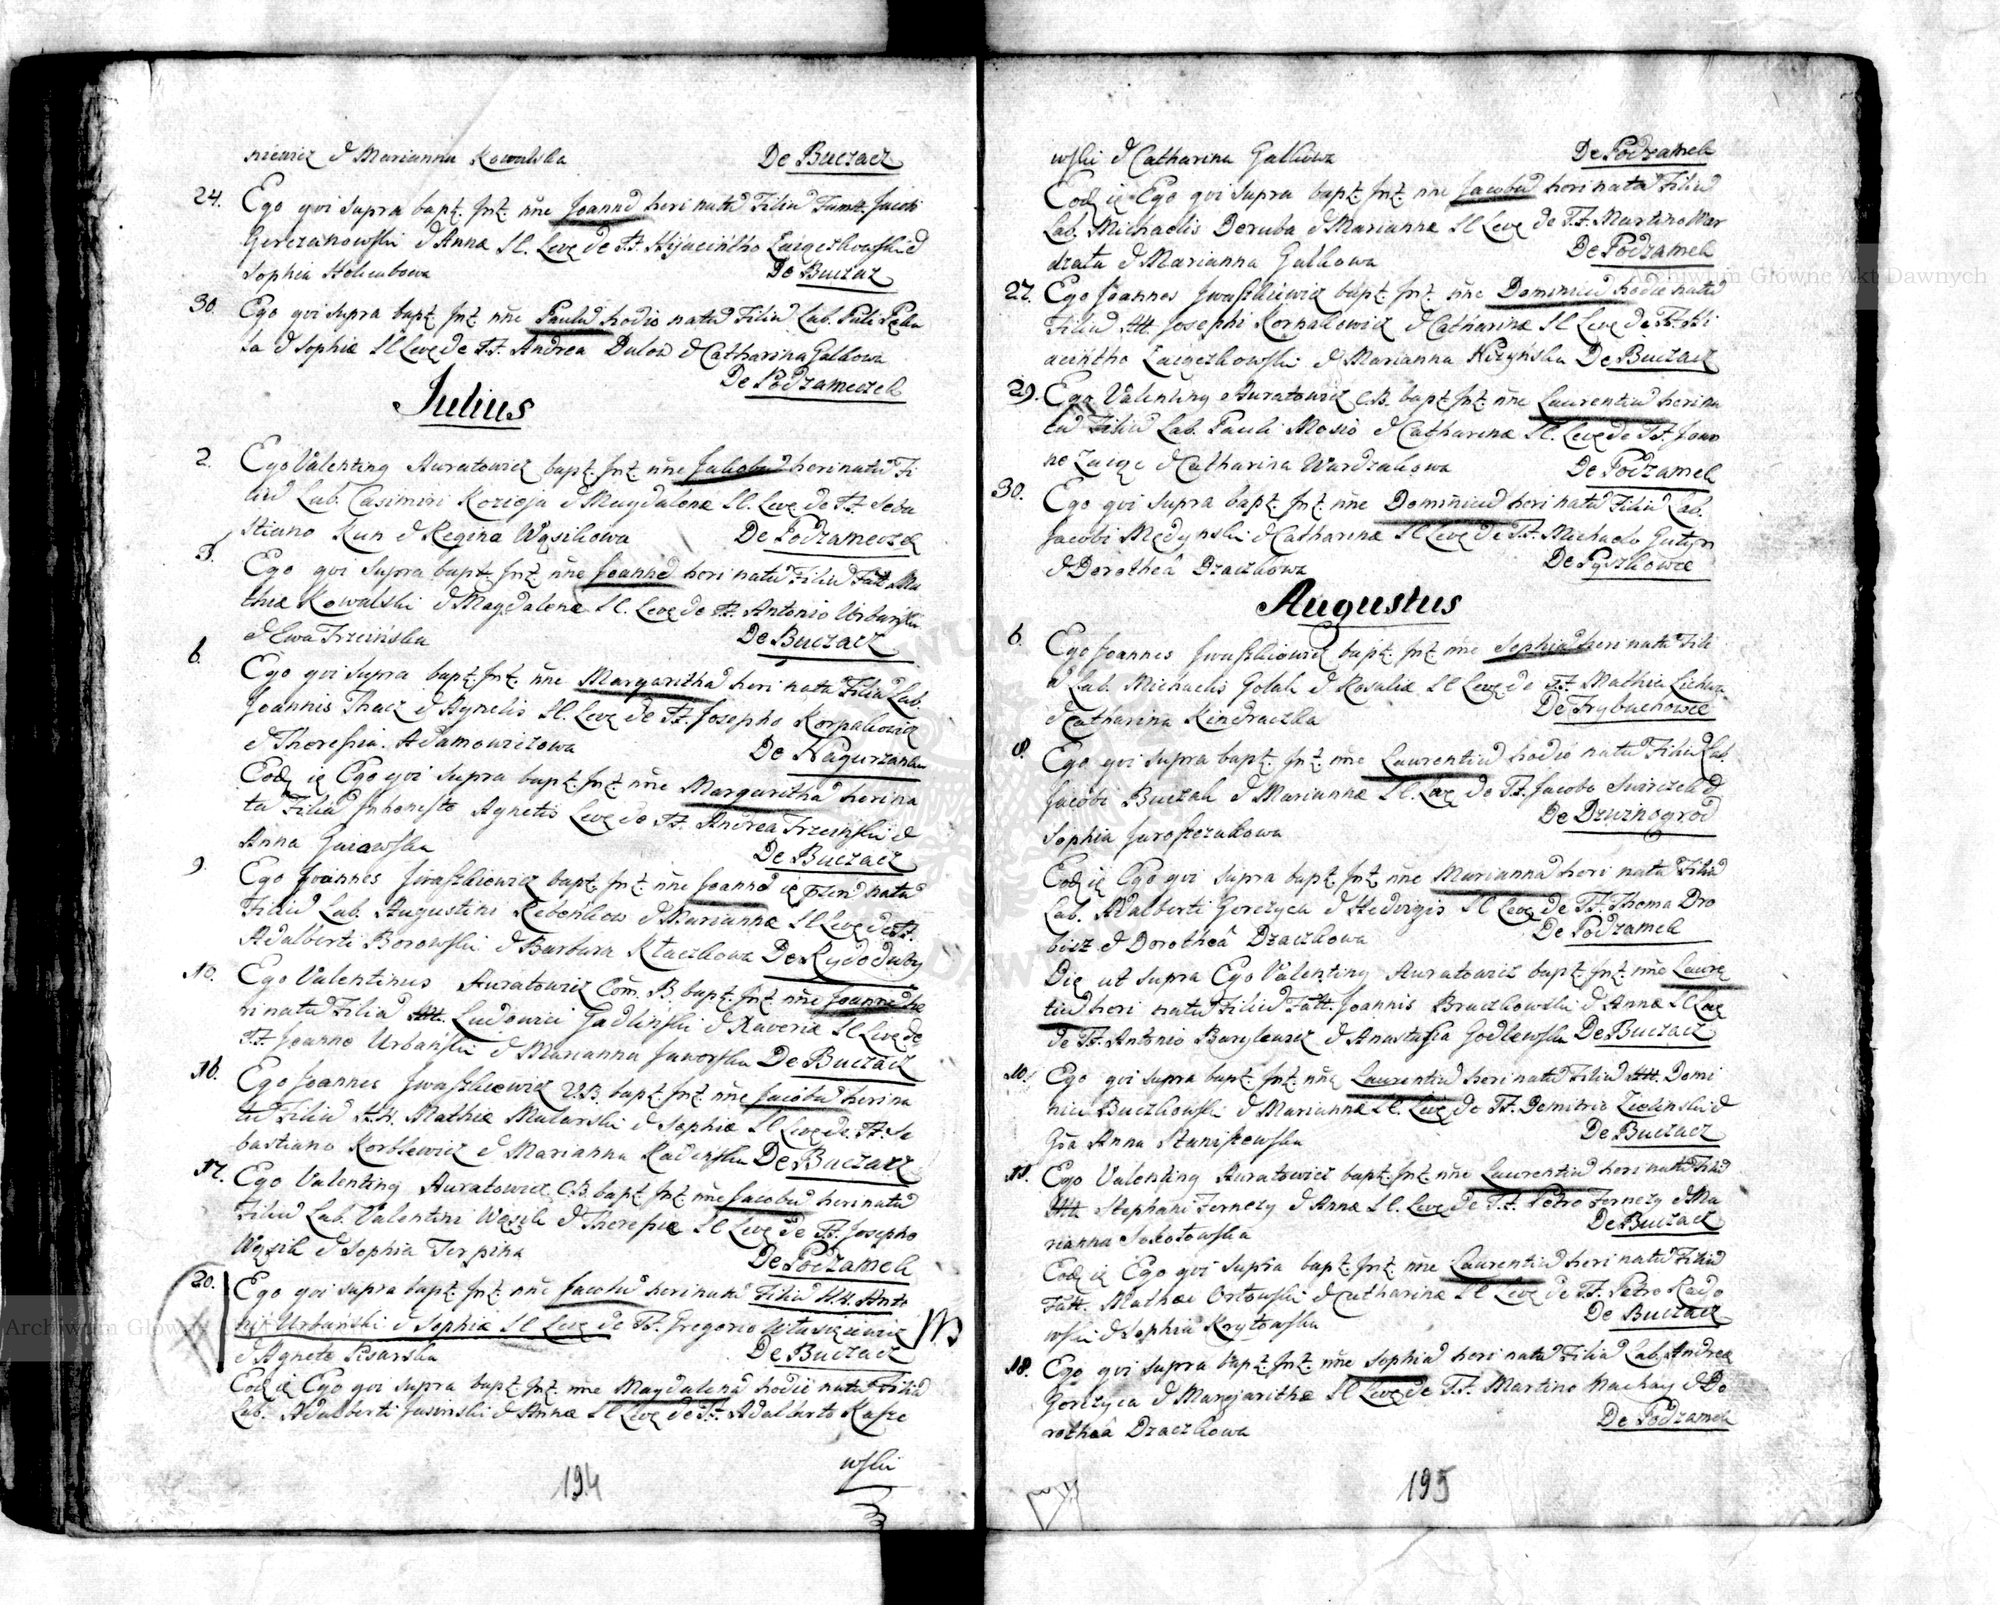 niewicz & Marianna Kowalska De Buczacz
24. Ego qvi supra bapt. Inf. nne Joannē heri natū Filiū Famtt. Jacobi
Gerczanowski & Annæ Sl. Leve de FF. Hijacintho Zaiączkowski &
Sophia Holeubowa De Buczaz
30. Ego qvi supra bapt. Inf. nne Paulū hodie natū Filiū Lab.
& Sophiæ Sl Leve de FF. Andrea Dulow & Catharina Galkowa
De Podzameczek
Julius
2. Ego Valentinq Auratowicz bapt. Inf. nne Jakobū heri natū Fi
liū Lab. Casimiri Kozieja & Magdalenæ Sl. Leve de FF. Seba
stiano Kun & Regina Wąsikowa De Podzameczek
3. Ego qvi supra bapt. Inf. nne Joannē heri natū Filiū Fatt. Ma
thiæ Kowalski & Magdalenæ Sl. Leve de FF. Antonio Urbański
& Ewa Trzcińska De Buczacz
6. Ego qvi supra bapt. Inf. nne Margarithā heri natā Filiā Lab.
Joannis Tkacz & Agnetis Sl. Leve de FF. Josepho Korpakowicz
& Theresia Adamowiczowa De Nagurzanka
Eodē Ego qvi supra bapt. Inf. nne Margarithā heri na
tā Filiā Inhonestæ Agnetis Leve de FF. Andrea Trzciński &
Anna Gaiewska De Buczacz
9. Ego Joannes Iwaszkiewicz bapt. Inf. nne Joannē natū
Filiū Lab. Augustini Rebeńkow & Mariannæ Sl Leve de FF.
Adalberti Borowski & Barbara Kłaczkowa De Rydoduby
10. Ego Valentinus Auratowicz Com. B. bapt. Inf. nne Joannā he
ri natā Filiā Ludovici Jadliński & Xaveriæ Sl Leve de
FF. Joanne Urbański & Marianna Jaworska De Buczacz
16. Ego Joannes Iwaszkiewicz V.B. bapt. Inf. nne Jacobū heri na
tū Filiū Mathiæ Malarski & Sophiæ Sl Leve de FF. Se
bastiano Korblewicz & Marianna Radeńska De Buczacz
17. Ego Valentinq Auratowicz C.B. bapt. Inf. nne Jacobū heri natū
Filiū Lab. Valentini Wąsik & Theresiæ Sl Leve de FF. Josepho
Wąsik & Sophia Terpika De Podzamek
20. Ego qvi supra bapt. Inf. nne Jacobū heri natū Filiū Anto
nii Urbański & Sophiæ Sl Leve de FF. Gregorio
& Agnete Pisarska De Buczacz
Eodē Ego qvi supra bapt. Inf. nne Magdalenā hodie natā Filiā
Lab. Adalberti Jasinski & Annæ Sl Leve de FF. Adalberto Kasze
wski
194
wski & Catharina Galkowa De Podzamek
Eodē Ego qvi supra bapt. Inf. nne Jacobū heri natū Filiū
Lab. Michaelis Deruba & Mariannæ Sl Leve de FF. Martino War
dzala & Marianna Galkowa De Podzamek
27. Ego Joannes Iwaszkiewicz bapt. Inf. nne Dominicū hodie natū
Filiū Josephi Korpakowicz & Catharinæ Sl Leve de FF. Hi
acintho Zaięczkowski & Marianna De Buczacz
29. Ego Valentinq Auratowicz C.B. bapt. Inf. nne Laurentiū heri na
tū Filiū Lab. Pauli Mosio & Catharinæ Sl. Leve de FF. Joan
ne Zaiąc & Catharina Wardzalowa De Podzamek
30. Ego qvi supra bapt. Inf. nne Dominicū heri natū Filiū Lab.
Jacobi Medynski & Catharinæ Sl Leve de FF. Michaelo
& Dorothea Dzaczkowa De Pyszkowce
Augustus
6. Ego Joannes Iwaszkiewicz bapt. Inf. nne Sophiā heri natā Fili
ā Lab. Michaelis Golak & Rosaliæ Sl Leve de FF. Mathia
& Catharina Kindraczka De Trybuchowce
8. Ego qvi supra bapt. Inf. nne Laurentiū hodie natū Filiū Lab.
Jacobi Buczak & Mariannæ Sl. Leve de FF. Jacobo Swirczek &
Sophia Juroszczukowa De Dzwinogrod
Eodē Ego qvi supra bapt. Inf. nne Mariannā heri natā Filiā
Lab. Adalberti Gorczyca & Hedvigis Sl Leve de FF. Thoma Dro
bicz & Dorothea Dzaczkowa De Podzamek
Die ut supra Ego Valentinq Auratowicz bapt. Inf. nne Laurē
tiū heri natū Filiū Fatt. Joannis Braczkowski & Annæ Sl Leve
de FF. Antonio Barylewicz & Anastasia Godlewska De Buczacz
10. Ego qvi supra bapt. Inf. nne Laurentiū heri natū Filiū Domi
nici Buczkowski & Mariannæ Sl. Leve de FF. Demitrio Zielinski &
Gsa Anna Staniszewska De Buczacz
11. Ego Valentinq Auratowicz bapt. Inf. nne Laurentiū heri natū Filiū
Stephani Fernezy & Annæ Sl. Leve de FF. Petro Fernezy & Ma
rianna Sokołowska De Buczacz
Eodē Ego qvi supra bapt. Inf. nne Laurentiū heri natū Filiū
Fatt. Mathæi Orłowski & Catharinæ Sl Leve de FF. Petro Rado
wski & Sophia Kryłowska De Buczacz
18. Ego qvi supra bapt. Inf. nne Sophiā heri natā Filiā Lab. Andreæ
Gorczyca & Margarithæ Sl Leve de FF. Martino Machay & Do
rothea Dzaczkowa De Podzamek
195
Archiwum Główne Akt Dawnych
Archiwum Główne